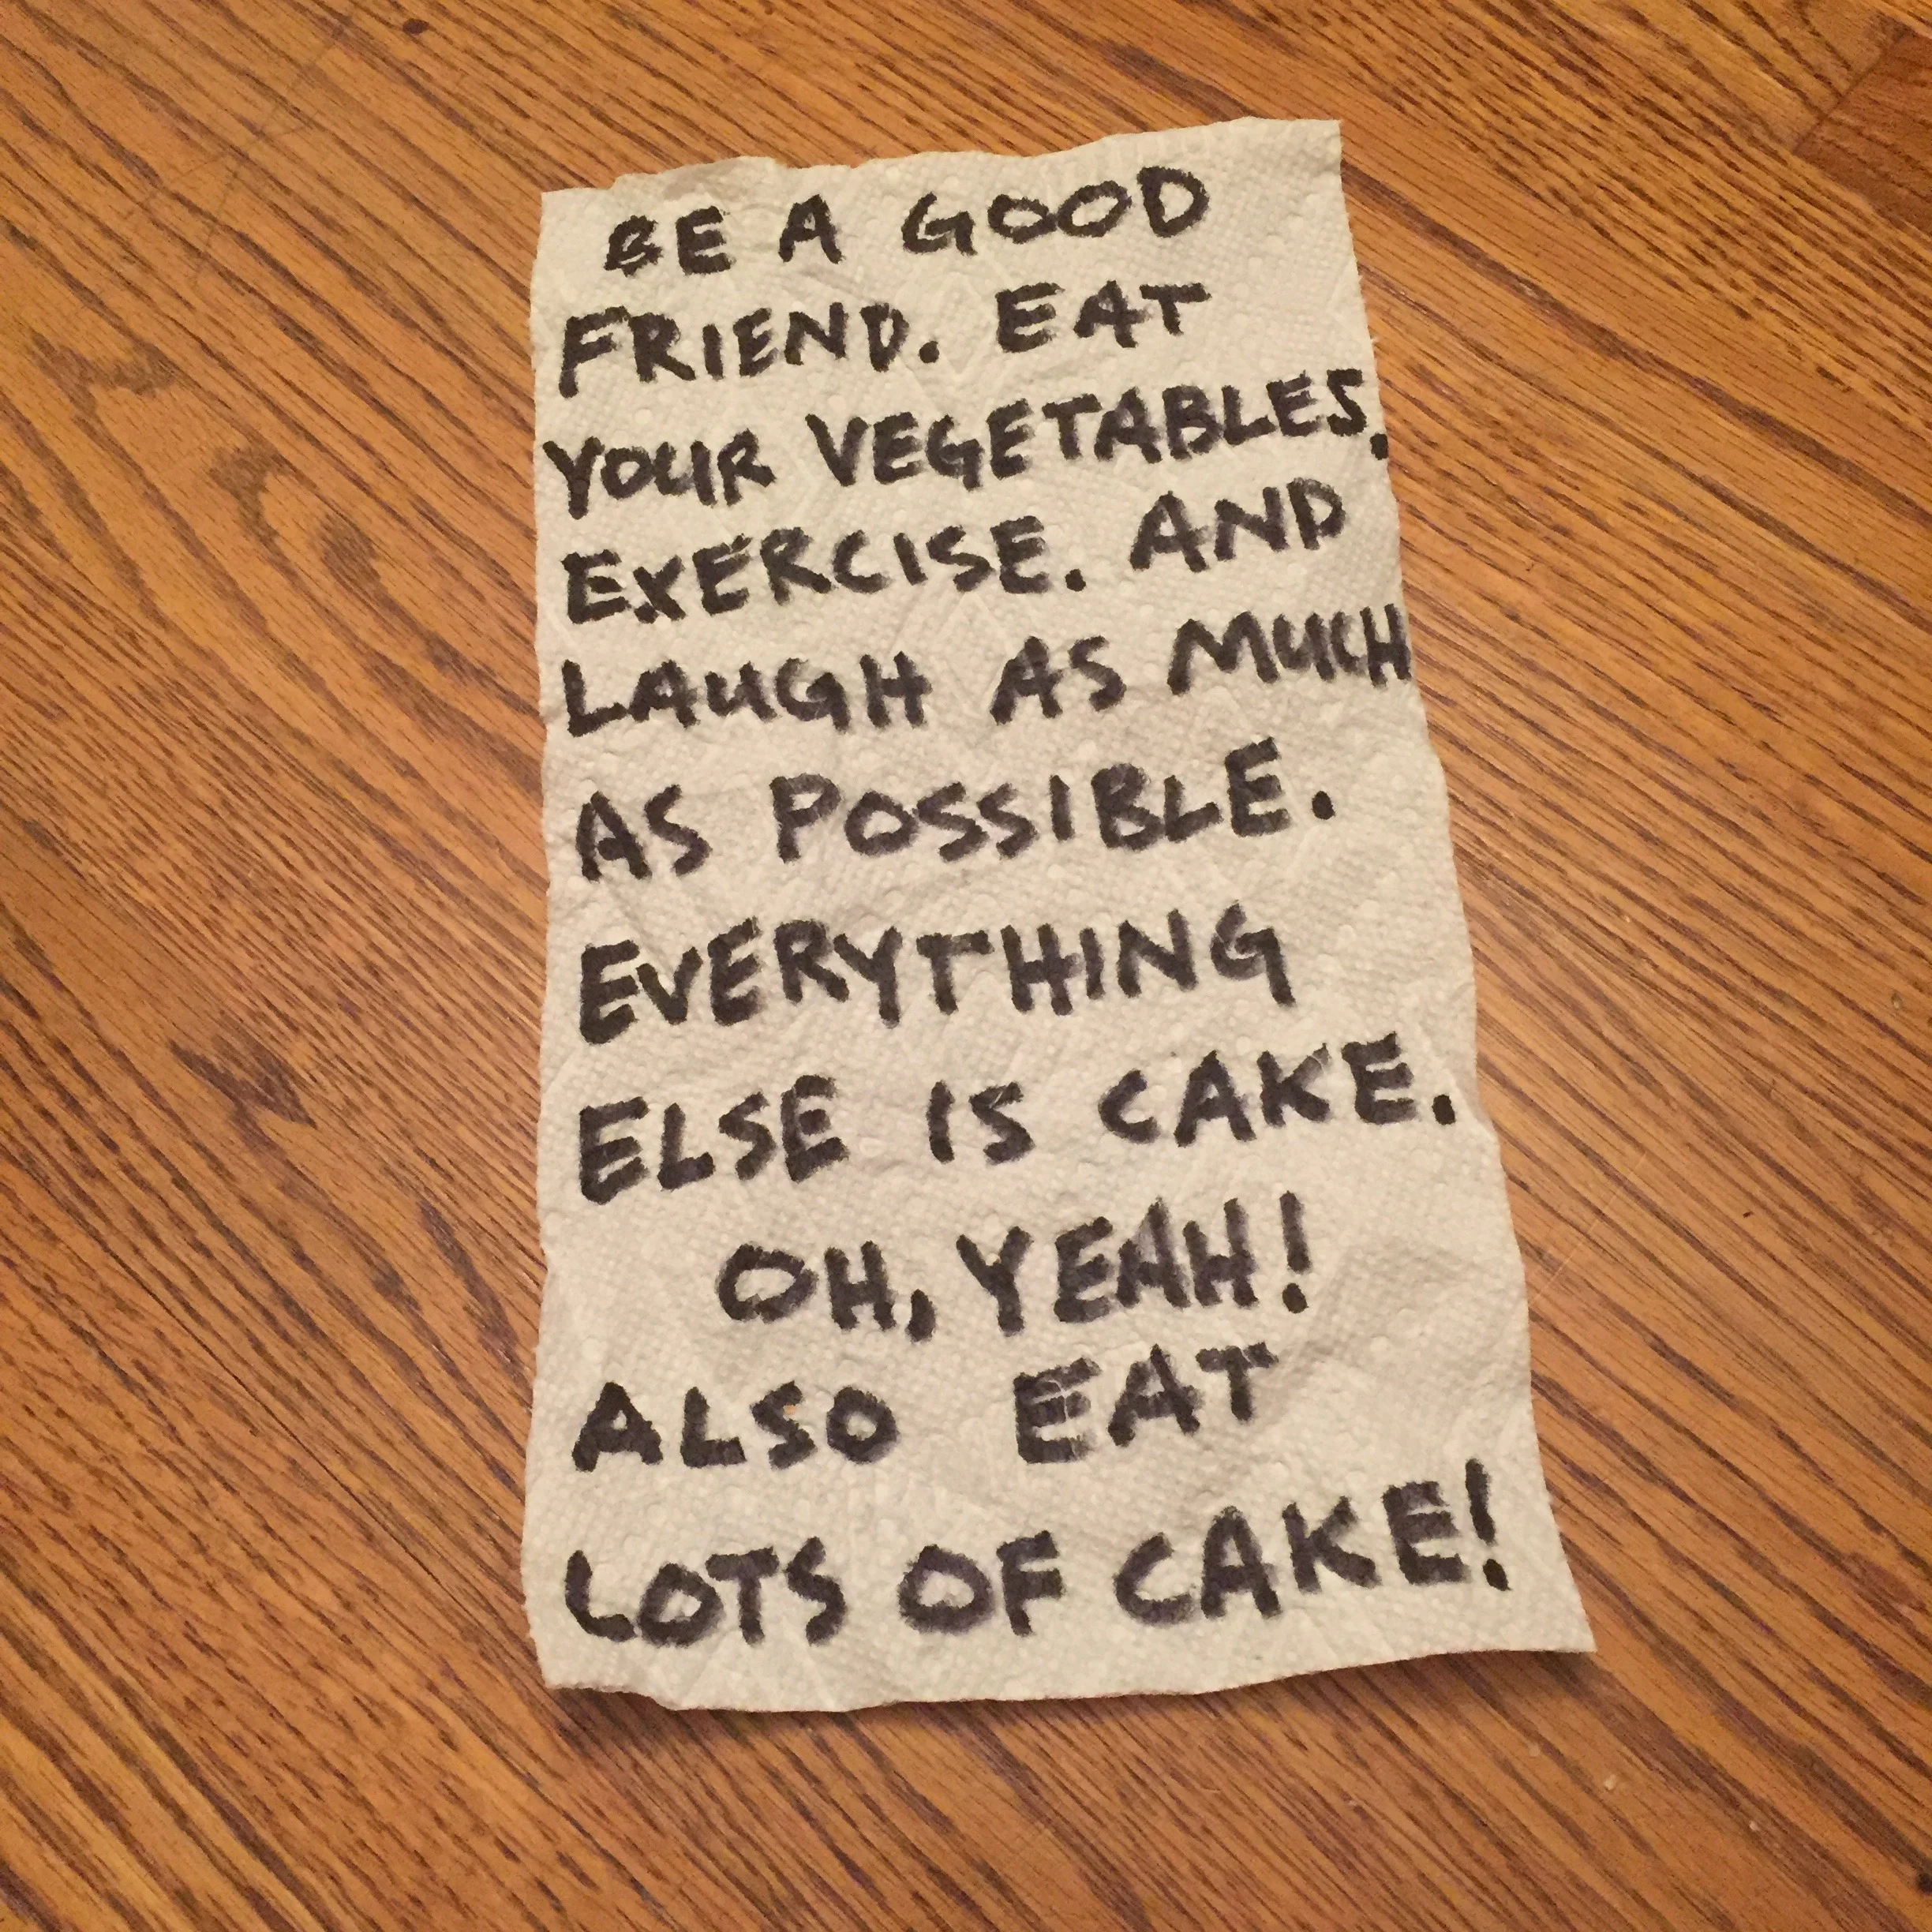 BE A GOOD
FRIEND. EAT
YOUR VEGETABLES.
EXERCISE. AND
LAUGH AS MUCH
AS POSSIBLE.
EVERYTHING
ELSE IS CAKE.
OH, YEAH!
ALSO EAT
LOTS OF CAKE!